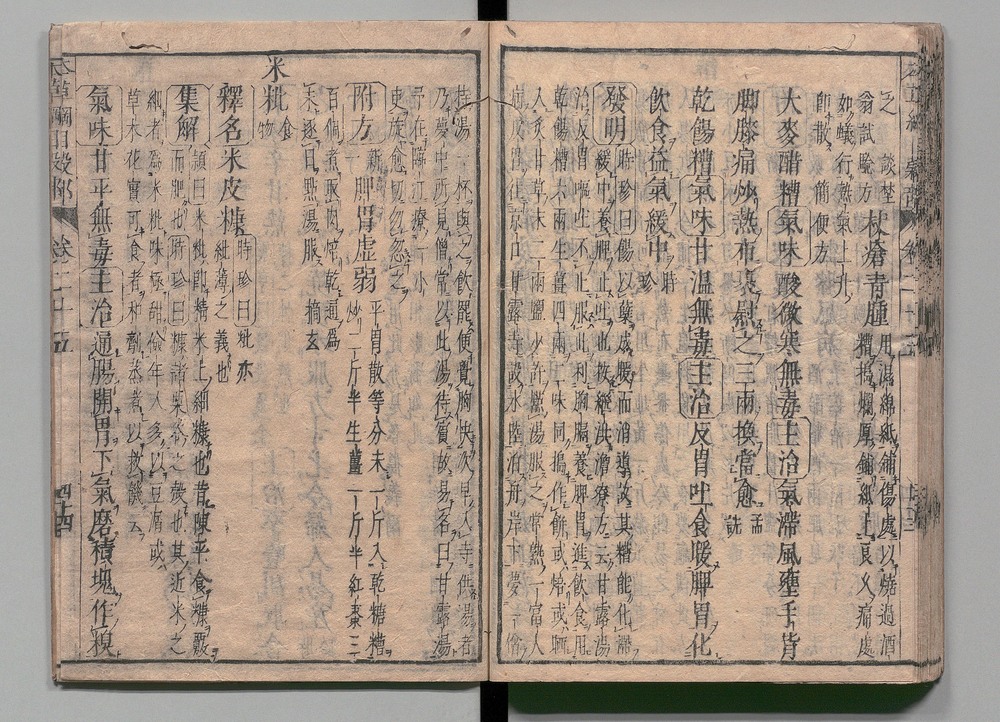 之　談埜
翁試驗方
杖瘡青腫
用濕綿紙鋪傷處以燒過酒
糟搗爛厚鋪紙上良久痛處
如蟻行熱氣上升
即散　簡便方
大麥醋糟氣味酸微寒無毒主治氣滯風壅手背
脚膝痛炒熱布裹慰之三兩換當愈孟詵
乾餳糟氣味甘溫無毒主治反胃吐食暖脾胃化
飲食益氣緩中時珍
發明時珍曰餳以蘗成暖而消導故其糟能化滯
緩中養脾止吐也按繼洪澹寮方云甘露湯
治反胃嘔吐不止服此利胸膈養脾胃進飲食用
乾餳糟六兩生薑四兩二味同搗作餅或焙或晒
入炙甘草末二兩鹽少許點湯服之常熟一富人
病反胃往京口甘露寺設水陸泊舟岸下夢一僧
持湯一杯與之飲罷便覺胸快次早入寺供湯者
乃夢中所見僧常以此湯待賓故易名曰甘露湯
予在臨汀療一小
吏旋愈切勿忽之
附方新一脾胃虛弱平胃散等分末一斤入乾糖糟
炒一斤半生薑一斤半紅棗三
百個煮取肉焙乾通爲
末逐日點湯服　摘玄
米秕食物
釋名米皮糠時珍曰秕亦
紕薄之義也
集解頴曰米秕卽精米上細糠也昔陳平食糠覈
而肥也時珍曰糠諸粟穀之殼也其近米之
細者爲米秕味極甜儉年人多以豆屑或
草木花實可食者和劑蒸煮以救饑云
氣味甘平無毒主治通腸開胃下氣磨積塊作糗
本草綱目穀部　卷二十五　四十四